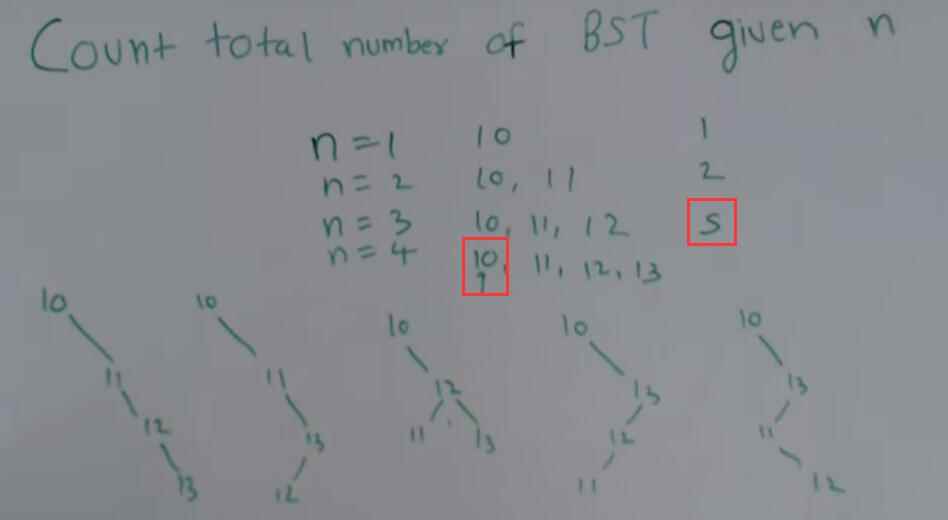 Count total number of BST given n
n = 1 10 1
n = 2 10, 11 2
n = 3 10, 11, 12 5
n = 4 10, 11, 12, 13
10 10 10 10 10
11 11 12 13 13
12 13 11 13 12 11
13 12 11 12